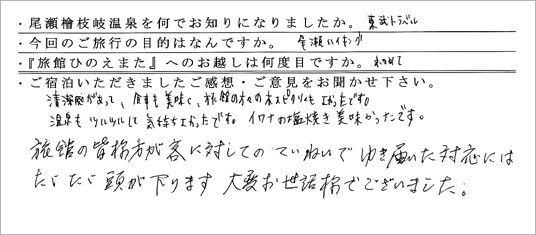 ・尾瀬檜枝岐温泉を何でお知りになりましたか。 東武トラベル
・今回のご旅行の目的はなんですか。 尾瀬ハイキング
・『旅館ひのえまた』へのお越しは何度目ですか。 初めて
・ご宿泊いただきましたご感想・ご意見をお聞かせ下さい。
清潔感があって、食事も美味しく、旅館の方々のホスピタリィもよかったです。
温泉もツルツルして気持ちよかったです。イワナの塩焼き美味かったです。
旅館の皆様方が客に対しての ていねいで ゆき届いた対応には
ただただ頭が下ります 大変お世話様でございました。